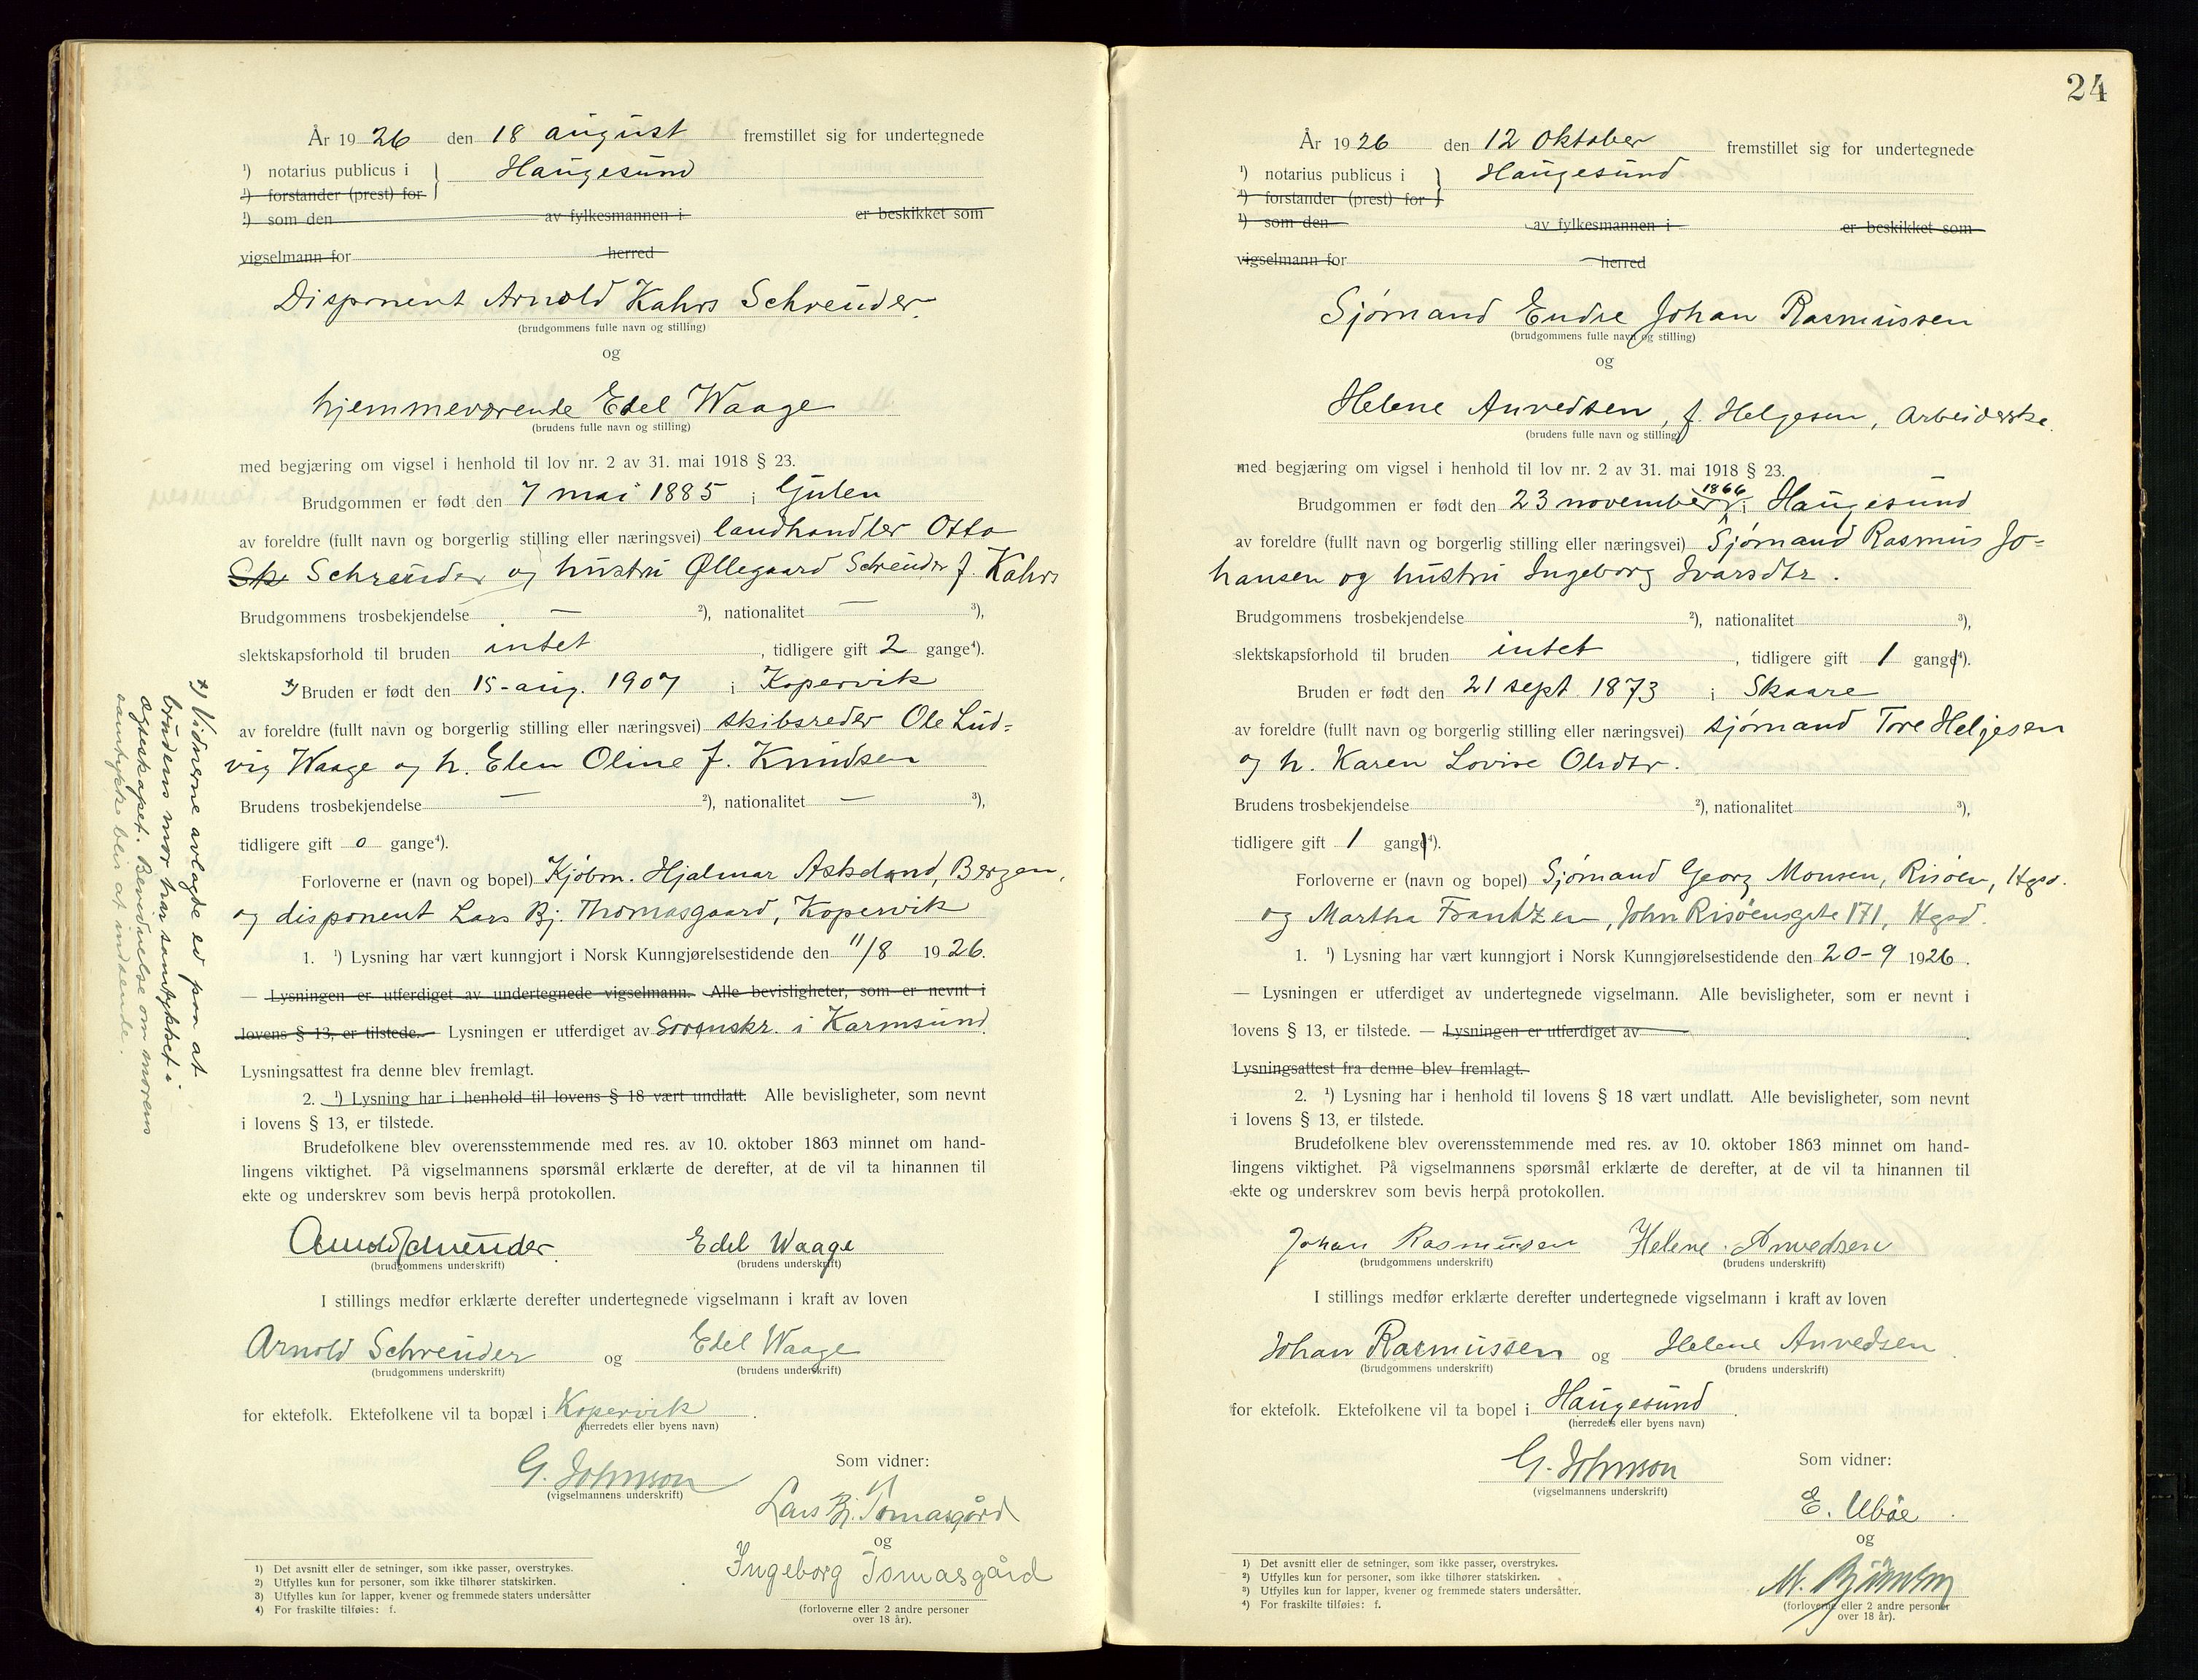 År 1926 den 18 august fremstillet sig for undertegnede
¹) notarius publicus i } Haugesund
¹) forstander (prest) for
¹) som den av fylkesmannen i er beskikket som
vigselmann for herred
Disponent Arnold Kahrs Schreuder.
(brudgommens fulle navn og stilling)
og
hjemmeværende Edel Waage
(brudens fulle navn og stilling)
med begjæring om vigsel i henhold til lov nr. 2 av 31. mai 1918 § 23.
Brudgommen er født den 7 mai 1885 i Gulen
av foreldre (fullt navn og borgerlig stilling eller næringsvei) landhandler Otto
Sk. Schreuder og hustru Øllegaard Schreuder f. Kahrs
Brudgommens trosbekjendelse — ²), nationalitet — ³),
slektskapsforhold til bruden intet, tidligere gift 2 gange⁴).
*) Bruden er født den 15-aug. 1907 i Kopervik
av foreldre (fullt navn og borgerlig stilling eller næringsvei) skibsreder Ole Lud=
vig Waage og h. Elen Oline f. Knudsen
Brudens trosbekjendelse — ²), nationalitet — ³),
tidligere gift 0 gange⁴).
Forloverne er (navn og bopel) Kjøbm. Hjalmar Askeland, Bergen,
og disponent Lars Bj. Thomasgaard, Kopervik
1. ¹) Lysning har vært kunngjort i Norsk Kunngjørelsestidende den 11/8 1926.
— Lysningen er utferdiget av undertegnede vigselmann. Alle bevisligheter, som er nevnt i
lovens § 13, er tilstede. — Lysningen er utferdiget av Sorenskr. i Karmsund.
Lysningsattest fra denne blev fremlagt.
2. ¹) Lysning har i henhold til lovens § 18 vært undlatt. Alle bevisligheter, som nevnt
i lovens § 13, er tilstede.
Brudefolkene blev overensstemmende med res. av 10. oktober 1863 minnet om hand-
lingens viktighet. På vigselmannens spørsmål erklærte de derefter, at de vil ta hinannen til
ekte og underskrev som bevis herpå protokollen.
Arnold Schreuder Edel Waage
(brudgommens underskrift) (brudens underskrift)
I stillings medfør erklærte derefter undertegnede vigselmann i kraft av loven
Arnold Schreuder og Edel Waage
(brudgommens underskrift) (brudens underskrift)
for ektefolk. Ektefolkene vil ta bopæl i Kopervik.
(herredets eller byens navn)
G. Johnson
(vigselmannens underskrift)
Som vidner:
Lars Bj. Tomasgård
og
Ingeborg Tomasgård
(forloverne eller 2 andre personer
over 18 år).
1) Det avsnitt eller de setninger, som ikke passer, overstrykes.
2) Utfylles kun for personer, som ikke tilhører statskirken.
3) Utfylles kun for lapper, kvener og fremmede staters undersåtter
4) For fraskilte tilføies: f.
*) Vidnerne avlagde ed paa at
brudens mor har samtykket i
ægteskapet. Bevidnelse om morens
samtykke blir at indsende.
24
År 1926 den 12 Oktober fremstillet sig for undertegnede
¹) notarius publicus i } Haugesund
¹) forstander (prest) for
¹) som den av fylkesmannen i er beskikket som
vigselmann for herred
Sjømand Endre Johan Rasmussen
(brudgommens fulle navn og stilling)
og
Helene Anvedsen, f. Helgesen, Arbeiderske.
(brudens fulle navn og stilling)
med begjæring om vigsel i henhold til lov nr. 2 av 31. mai 1918 § 23.
Brudgommen er født den 23 november 1866 i Haugesund
av foreldre (fullt navn og borgerlig stilling eller næringsvei) Sjømand Rasmus Jo=
hansen og hustru Ingeborg Ivarsdtr.
Brudgommens trosbekjendelse ²), nationalitet ³),
slektskapsforhold til bruden intet, tidligere gift 1 gang⁴).
Bruden er født den 21 sept 1873 i Skaare
av foreldre (fullt navn og borgerlig stilling eller næringsvei) sjømand Tore Helgesen
og h. Karen Lovise Olsdtr.
Brudens trosbekjendelse ²), nationalitet ³),
tidligere gift 1 gang⁴).
Forloverne er (navn og bopel) Sjømand Georg Monsen, Risøen, Hgsd.
og Martha Frantzen, John Risøensgate 171, Hgsd.
1. ¹) Lysning har vært kunngjort i Norsk Kunngjørelsestidende den 20-9 1926.
— Lysningen er utferdiget av undertegnede vigselmann. Alle bevisligheter, som er nevnt i
lovens § 13, er tilstede. — Lysningen er utferdiget av
Lysningsattest fra denne blev fremlagt.
2. ¹) Lysning har i henhold til lovens § 18 vært undlatt. Alle bevisligheter, som nevnt
i lovens § 13, er tilstede.
Brudefolkene blev overensstemmende med res. av 10. oktober 1863 minnet om hand-
lingens viktighet. På vigselmannens spørsmål erklærte de derefter, at de vil ta hinannen til
ekte og underskrev som bevis herpå protokollen.
Johan Rasmussen Helene Anvedsen
(brudgommens underskrift) (brudens underskrift)
I stillings medfør erklærte derefter undertegnede vigselmann i kraft av loven
Johan Rasmussen og Helene Anvedsen
(brudgommens underskrift) (brudens underskrift)
for ektefolk. Ektefolkene vil ta bopel i Haugesund.
(herredets eller byens navn)
G. Johnson
(vigselmannens underskrift)
Som vidner:
E. Ubøe
og
M.
(forloverne eller 2 andre personer
over 18 år).
¹) Det avsnitt eller de setninger, som ikke passer, overstrykes.
²) Utfylles kun for personer, som ikke tilhører statskirken.
³) Utfylles kun for lapper, kvener og fremmede staters undersåtter.
⁴) For fraskilte tilføies: f.